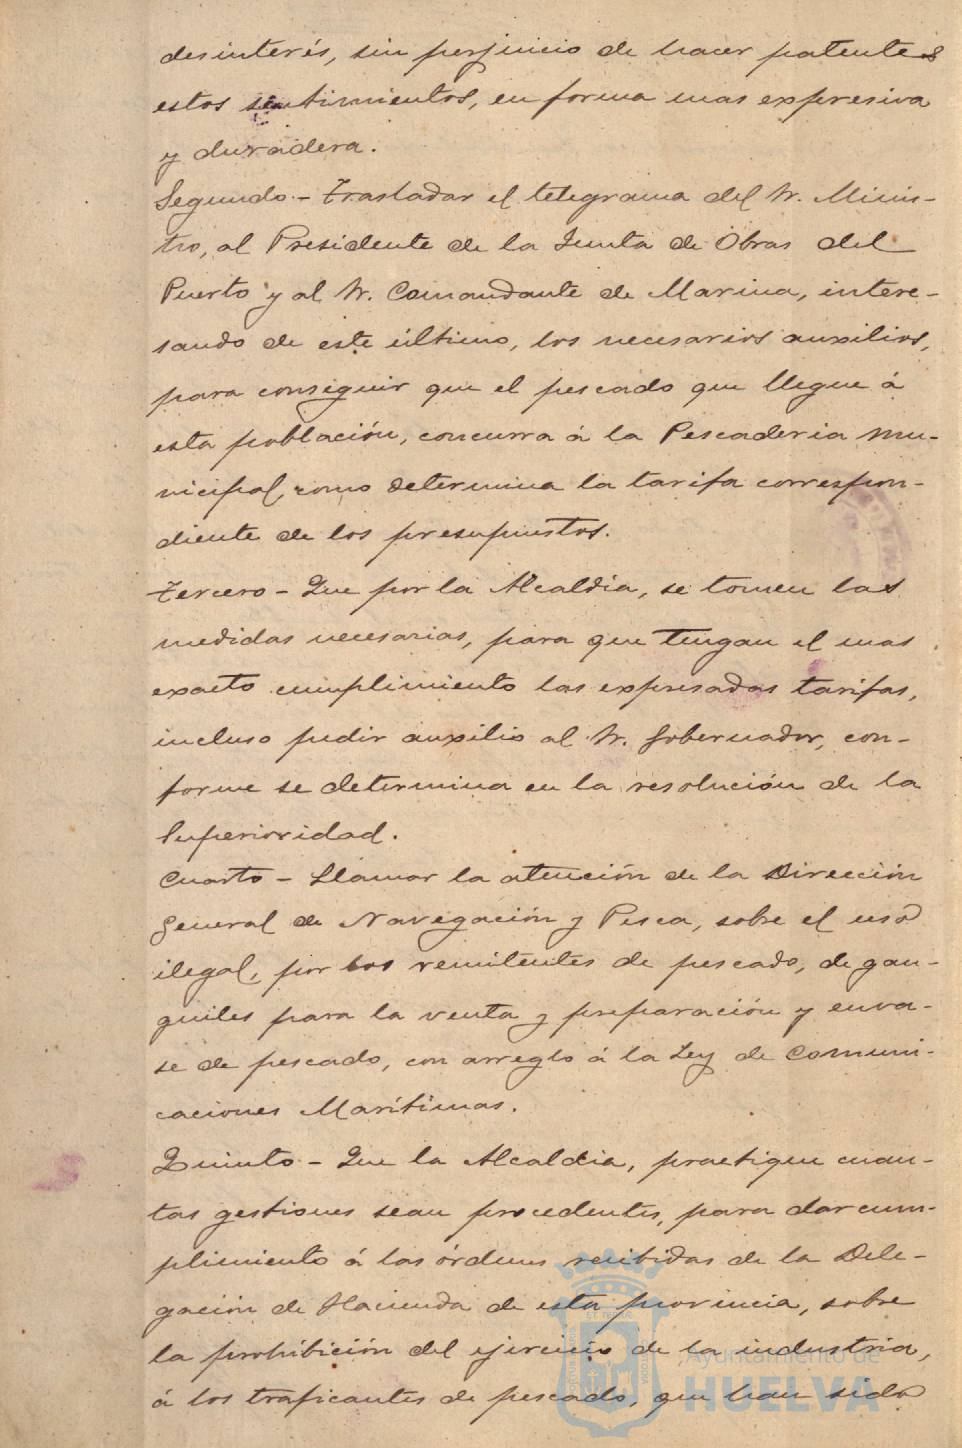 desinterés, sin perjuicio de hacer patentes
estos sentimientos, en forma mas expresiva
y duradera.
Segundo.- Trasladar el telegrama del Sr. Minis-
tro, al Presidente de la Junta de Obras del
Puerto y al Sr. Comandante de Marina, intere-
sando de este último, los necesarios auxilios,
para conseguir que el pescado que llegue á
esta población, concurra á la Pescaderia Mu-
nicipal, como determina la tarifa correspon-
diente de los presupuestos.
Tercero - Que por la Alcaldia, se tomen las
medidas necesarias, para que tengan el mas
exacto cumplimiento las expresadas tarifas,
incluso pedir auxilio al Sr. Gobernador, con-
forme se determina en la resolución de la
Superioridad.
Cuarto - Llamar la atención de la Dirección
General de Navegación y Pesca, sobre el uso
ilegal, por los remitentes de pescado, de gan-
guiles para la venta y preparación y enva-
se de pescado, con arreglo á la Ley de Comuni-
caciones Marítimas.
Quinto - Que la Alcaldia, practique cuan-
tas gestiones sean procedentes, para dar cum-
plimiento á las órdenes recibidas de la Dele-
gación de Hacienda de esta provincia, sobre
la prohibición del ejercicio de la industria,
á los traficantes de pescado, que han sido
Ayuntamiento de
HUELVA